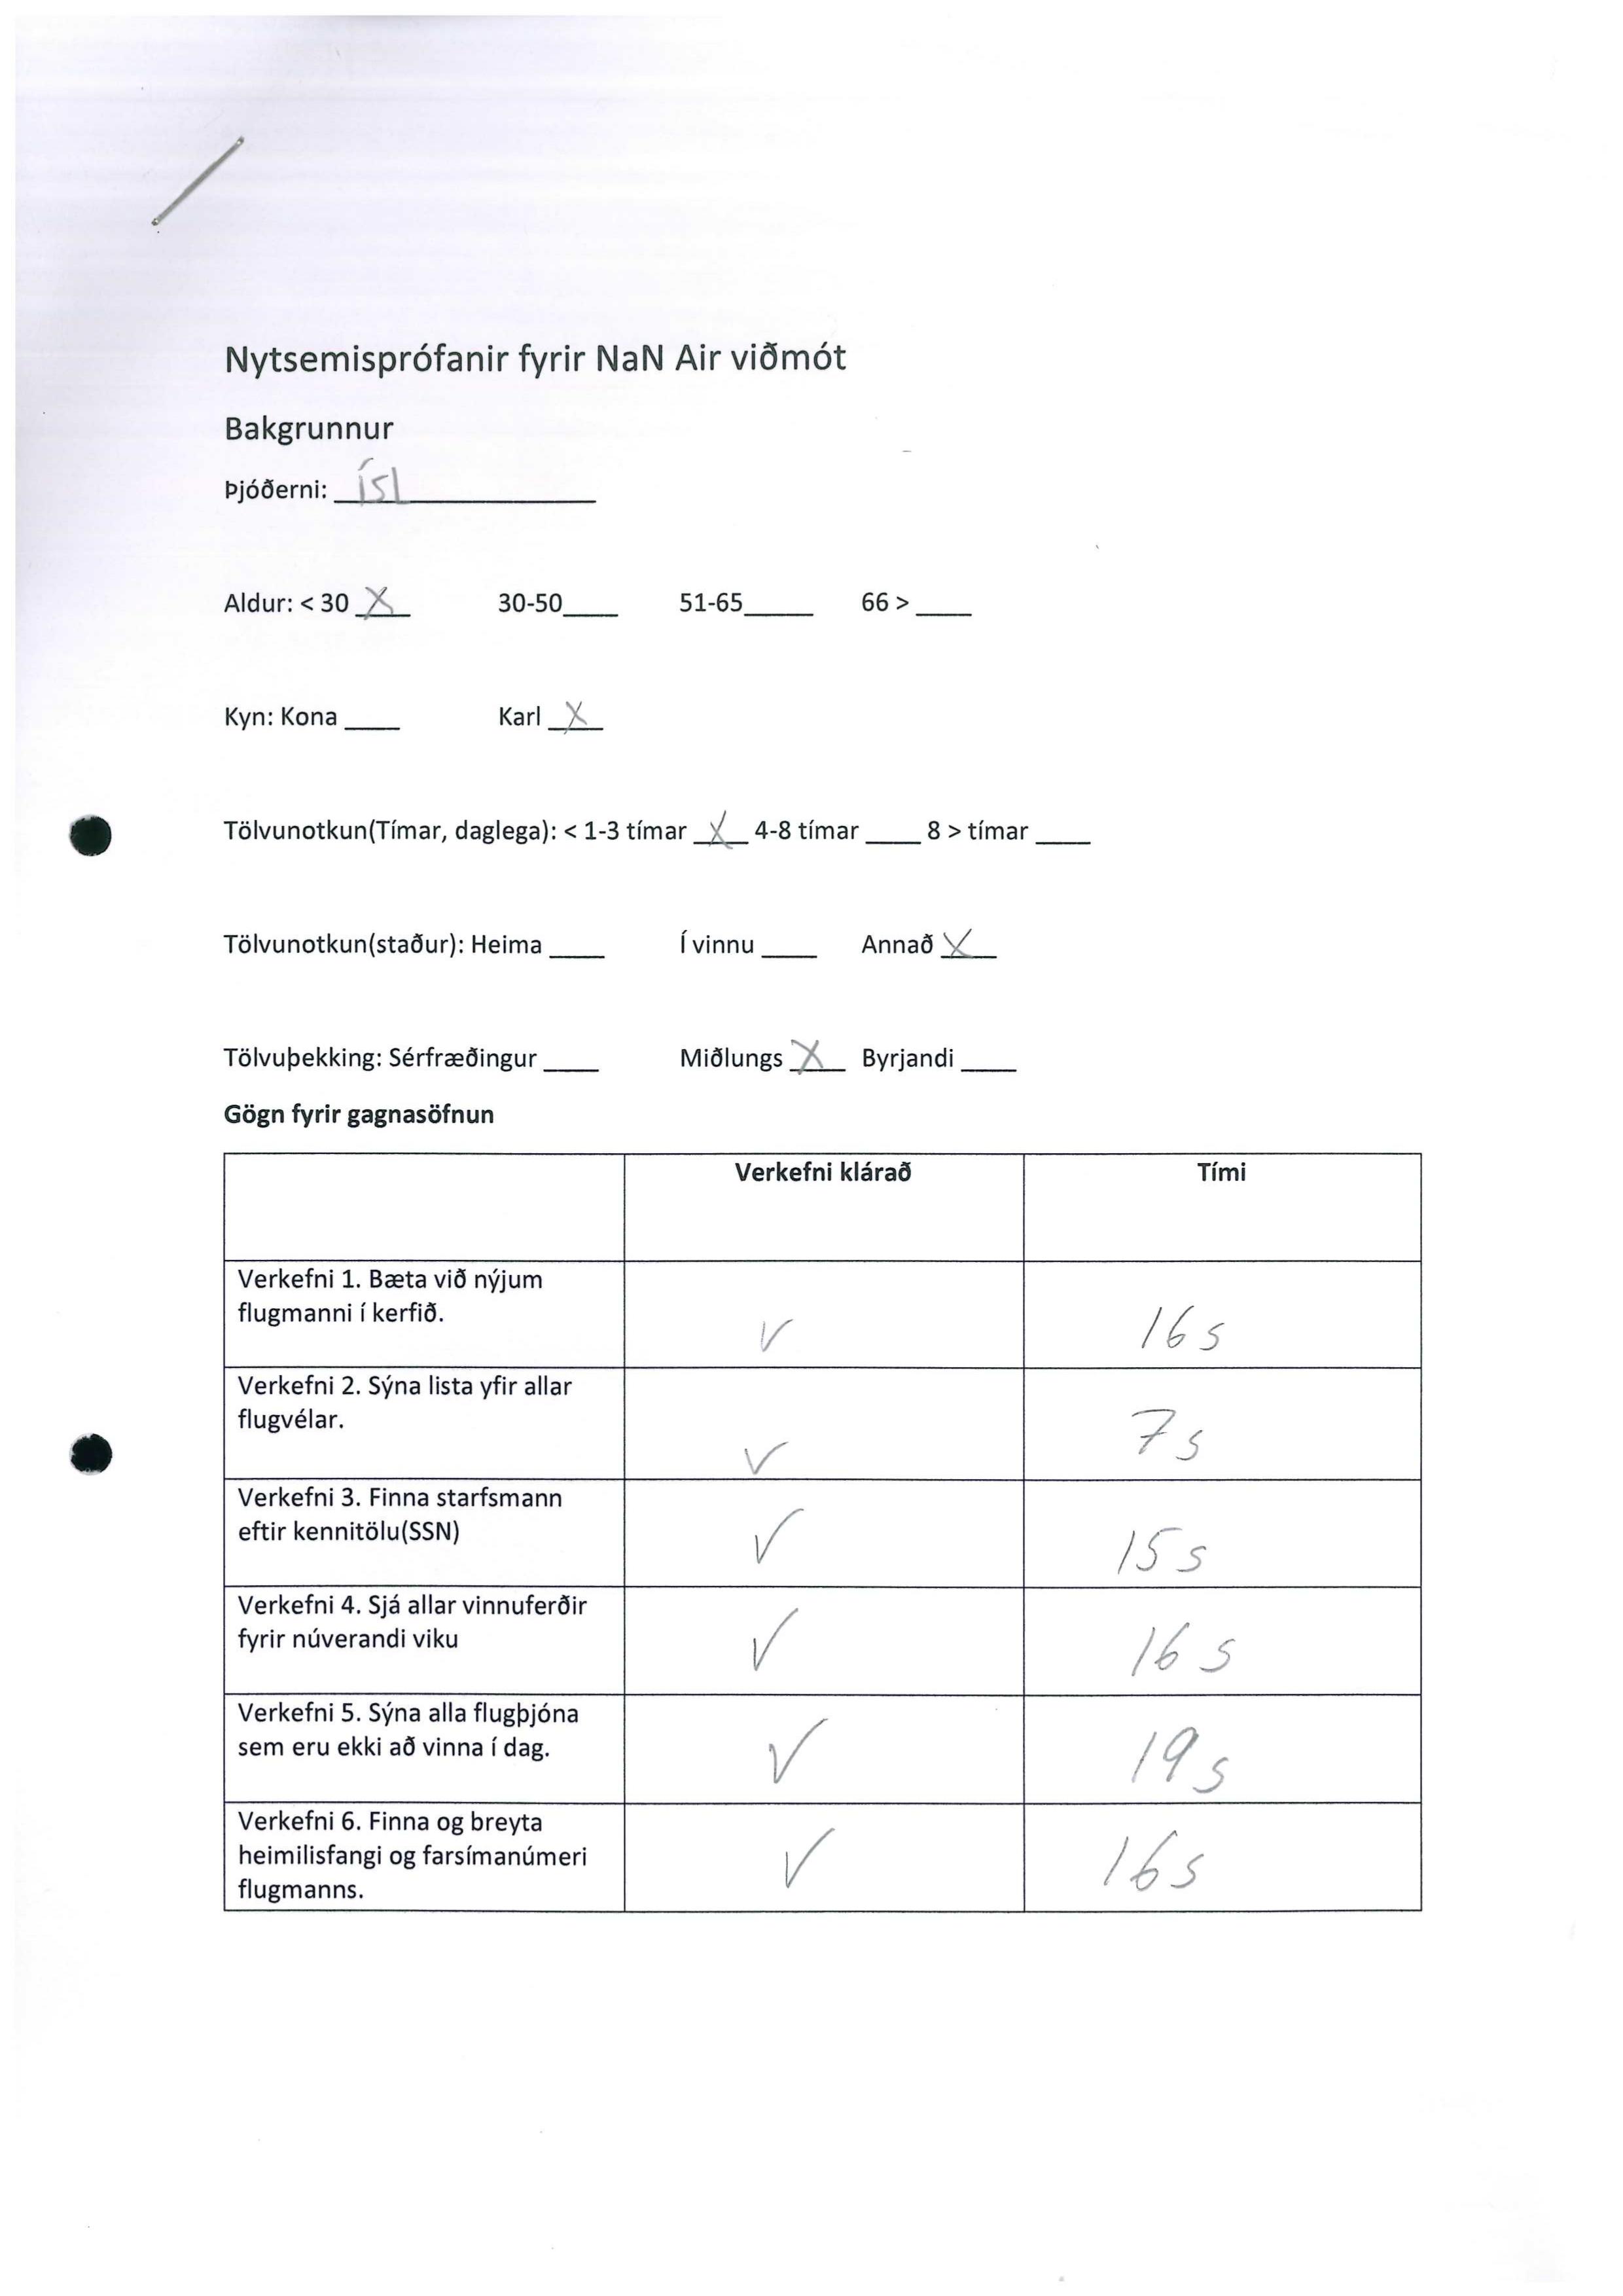 Nytsemisprófanir fyrir NaN Air viðmót
Bakgrunnur
Þjóðerni: ÍSL
Aldur: < 30 X 30-50____ 51-65_____ 66 > ____
Kyn: Kona ____ Karl X
Tölvunotkun(Tímar, daglega): < 1-3 tímar X 4-8 tímar ____ 8 > tímar ____
Tölvunotkun(staður): Heima ____ Í vinnu ____ Annað X
Tölvuþekking: Sérfræðingur ____ Miðlungs X Byrjandi ____
Gögn fyrir gagnasöfnun
Verkefni klárað Tími
Verkefni 1. Bæta við nýjum
flugmanni í kerfið. ✓ 16 s
Verkefni 2. Sýna lista yfir allar
flugvélar. ✓ 7 s
Verkefni 3. Finna starfsmann
eftir kennitölu(SSN) ✓ 15 s
Verkefni 4. Sjá allar vinnuferðir
fyrir núverandi viku ✓ 16 s
Verkefni 5. Sýna alla flugþjóna
sem eru ekki að vinna í dag. ✓ 19 s
Verkefni 6. Finna og breyta
heimilisfangi og farsímanúmeri ✓ 16 s
flugmanns.